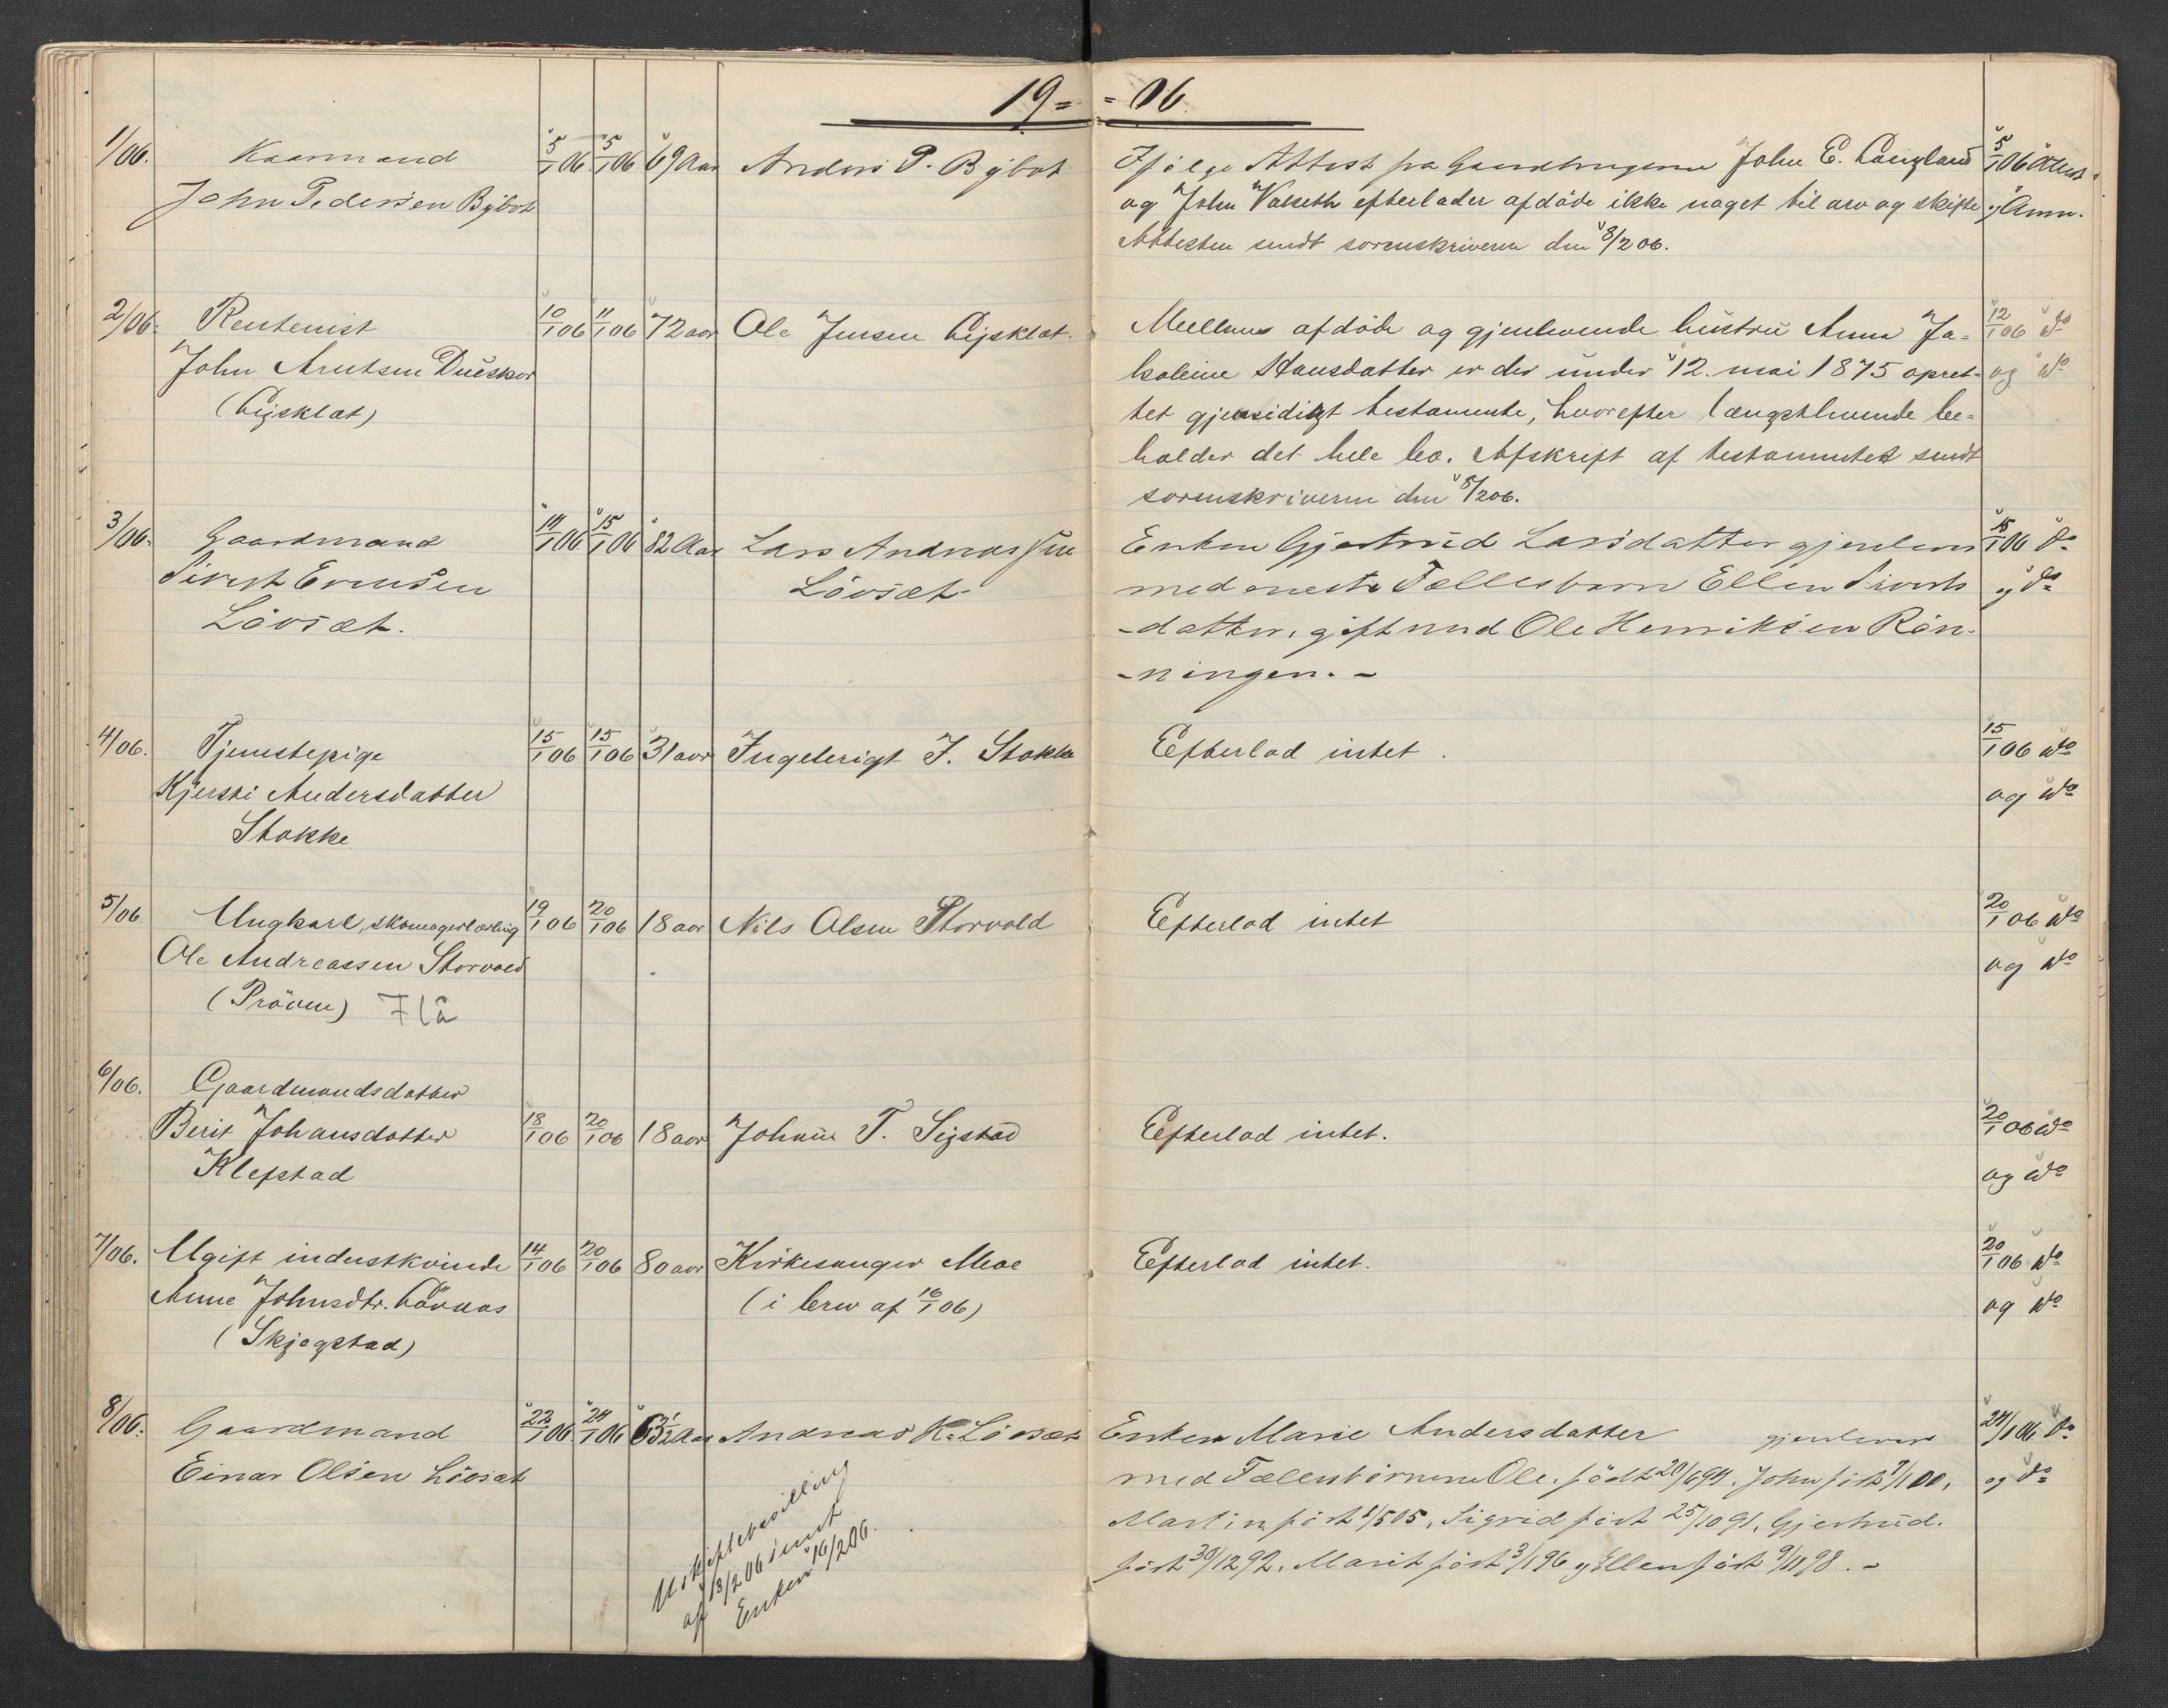 19 = = 06.
1/06. Kaarmand 5/1 06. 5/1 06 69 Aar Anders P. Bybot Ifølge Attest fra Gaardbrugerne John E. Langland 5/1 06
John Pedersen Bybot og John Valseth efterlader afdöde ikke noget til arv og skifte
Attesten sendt sorenskriveren den 8/2 06.
2/06. Rentenist 10/1 06 11/1 06 72 aar Ole Jensen Ligsklet. Mellem afdöde og gjenlevende hustru Anna Ja- 12/1 06 do
John Arntsen Dueskar kobine Hansdatter er der under 12. mai 1875 opret- og do
(Ligsklet) tet gjensidigt testamente, hvorefter længstlevende be-
holder det hele bo. Afskrift af testamentet sendt
sorenskriveren den 8/2 06.
3/06. Gaardmand 14/1 06 15/1 06 82 Aar Lars Andreassen Enken Gjertrud Larsdatter gjenlever 15/1 06 do
Sivert Evensen Lövsæt med eneste Fællesbarn Ellen Siverts og do
Lövsæt. -datter, gift med Ole Henriksen Rön-
-ningen. -
4/06. Tjenestepige 15/1 06 15/1 06 31 aar Ingebrigt J. Stokke Efterlod intet. 15/1 06 do
Kjersti Andersdatter og do
Stokke
5/06 Ungkarl, skomagerlærling 19/1 06 20/1 06 18 aar Nils Olsen Storvold Efterlod intet 20/1 06 do
Ole Andreassen Storvold og do
(Pröven) Flå
6/06. Gaardmandsdatter
Berit Johansdatter 18/1 06 20/1 06 18 aar Johan T. Sigstad Efterlod intet. 20/1 06 do
Klefstad og do
7/06. Ugift inderstkvinde 14/1 06 20/1 06 80 aar Kirkesanger Moe Efterlod intet. 20/1 06 do
Anne Johnsdtr. Lövaas (i brev af 16/1 06) og do
(Skjegstad)
8/06. Gaardmand 22/1 06. 24/1 06 63 1/2 Aar Andreas K. Lövsæt Enken Marie Andersdatter gjenlever 24/1 06 do
Einar Olsen Lövsæt med Fællesbörnene Ole, födt 20/6 94. John födt 7/1 00, og do
Martin födt 1/5 05, Sigrid födt 25/10 91, Gjertrud.
födt 30/12 92, Marit födt 3/1 96 og Ellen födt 9/11 98. -
Uskiftebevilling
af 13/2 06 sendt
Enken 16/2 06.